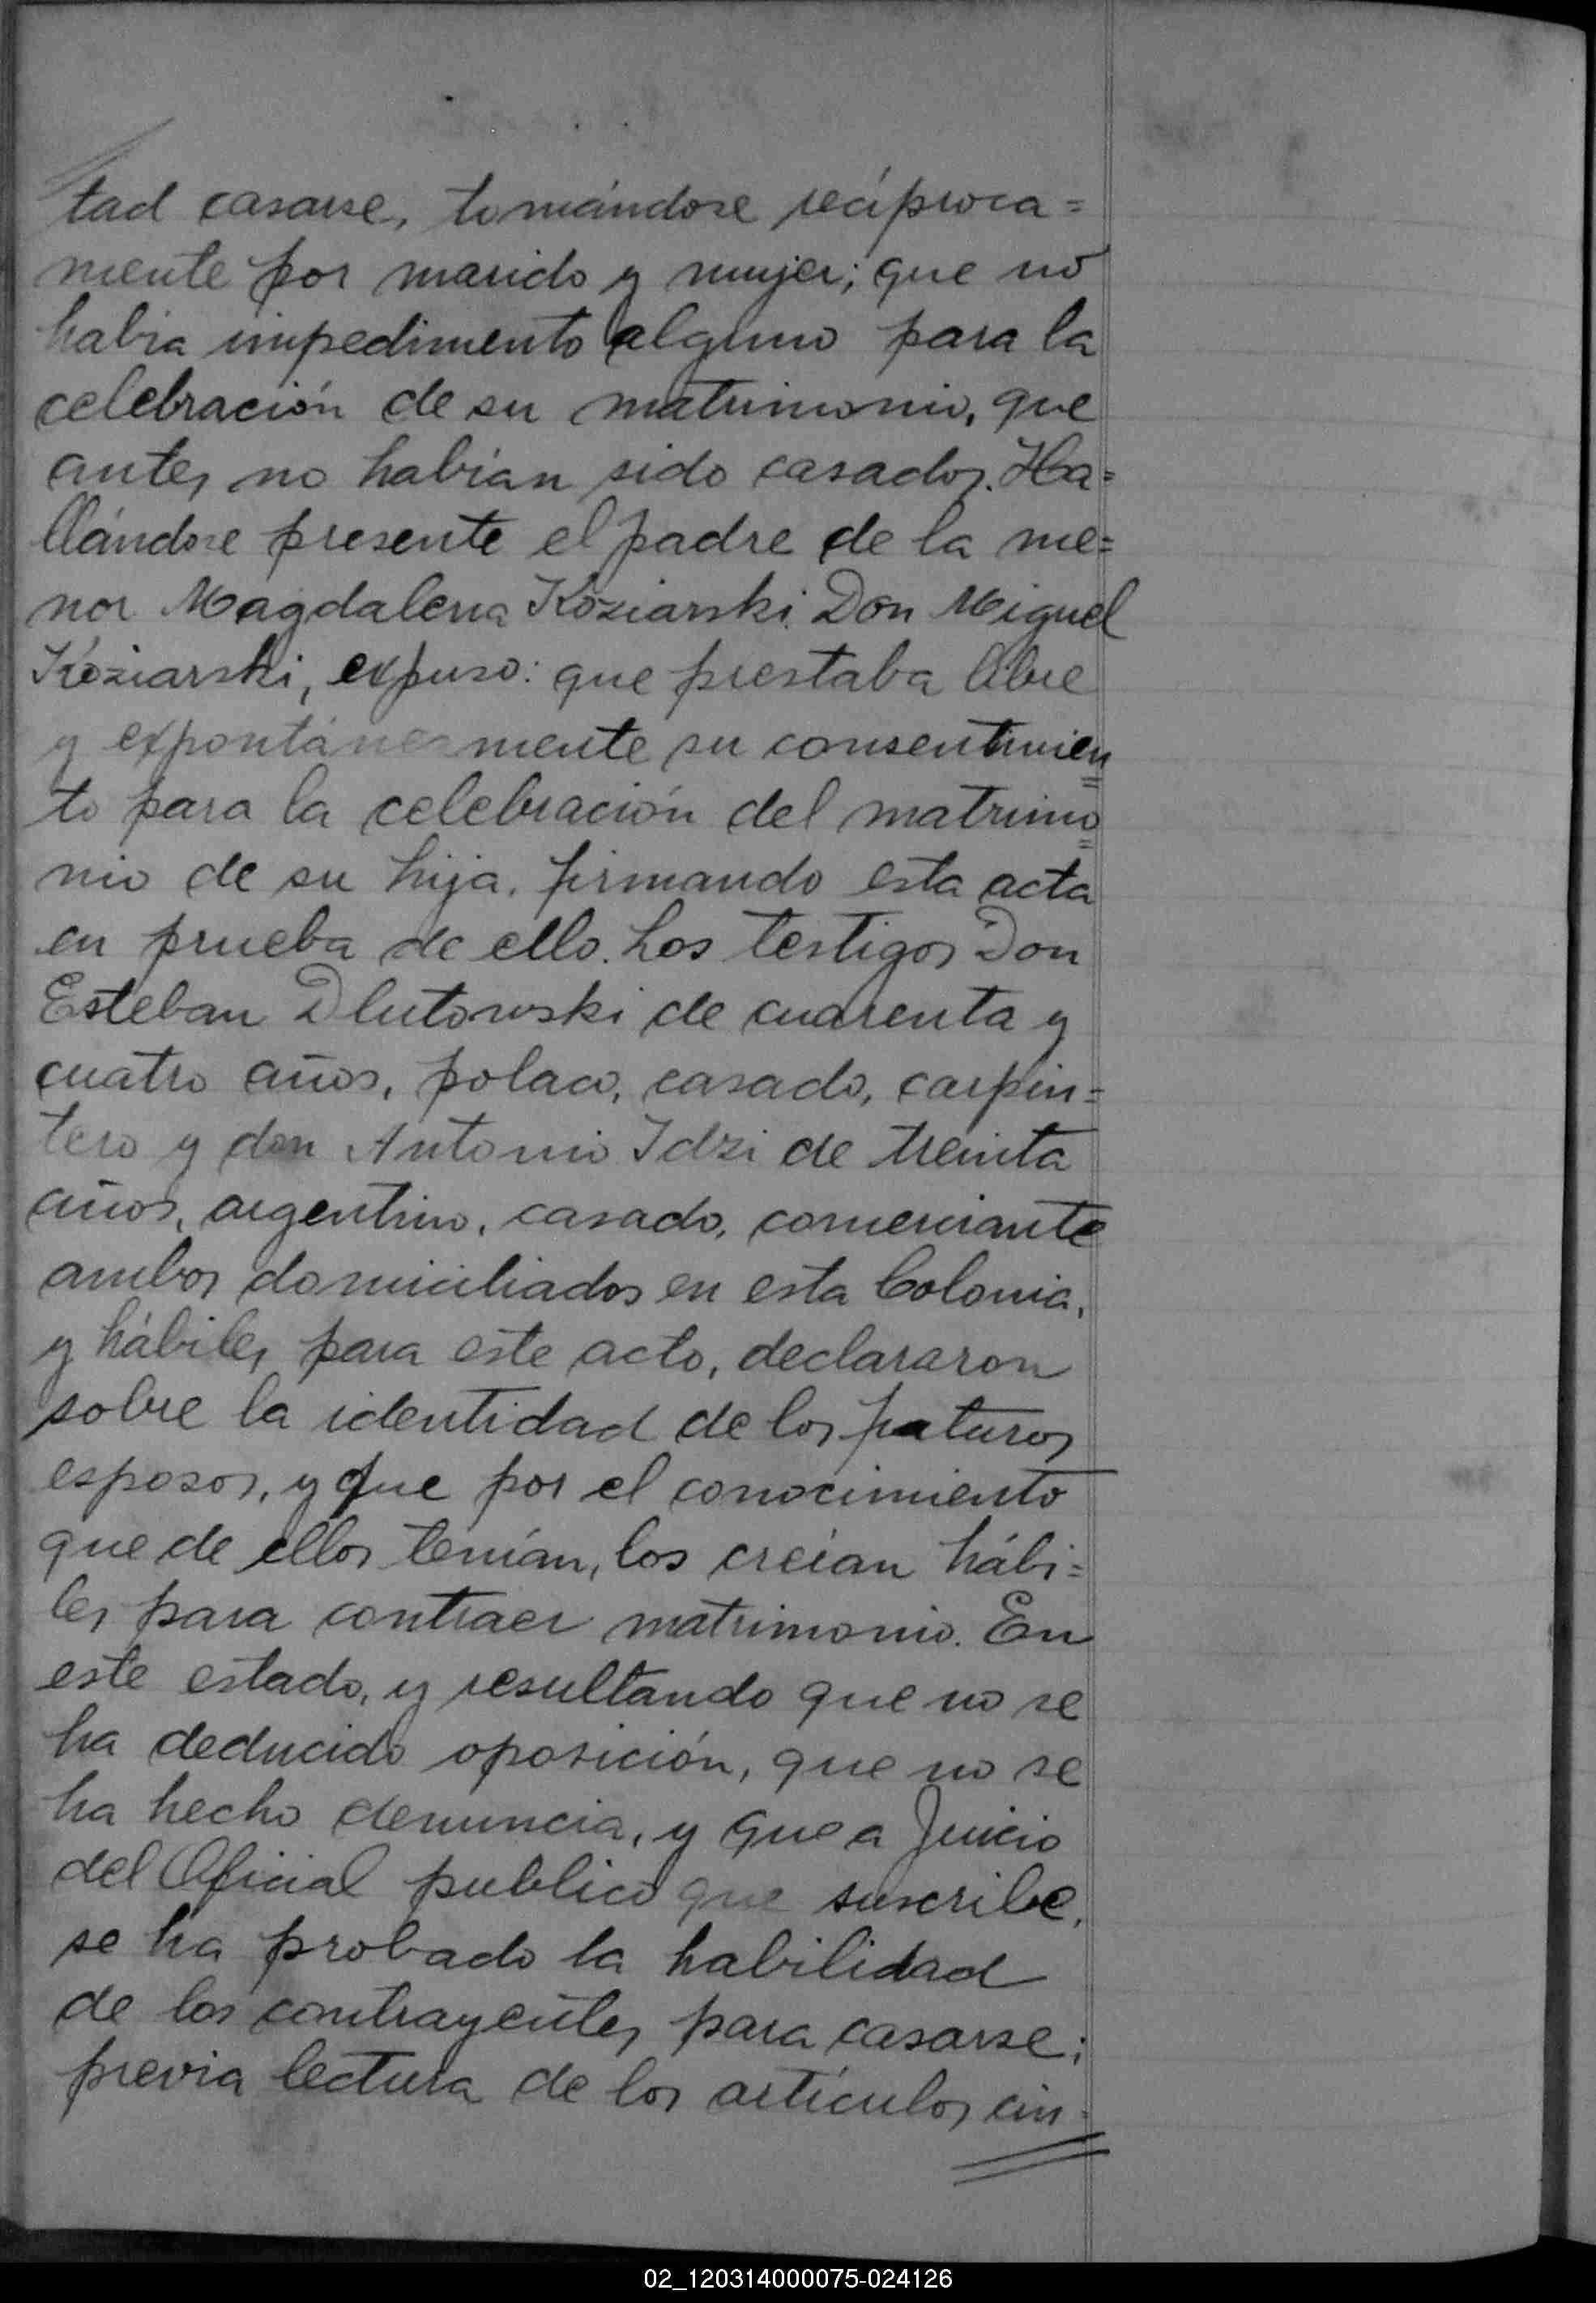 tad casarse, tomándose recíproca=
mente por marido y mujer; que no
habia impedimento alguno para la
celebración de su matrimonio, que
antes no habían sido casados. Ha=
llándose presente el padre de la me=
nor Magdalena Koziarski. Don Miguel
Koziarski, expuso: que prestaba libre
y expontáneamente su consentimien=
to para la celebración del matrimo=
nio de su hija, firmando esta acta
en prueba de ello. Los testigos Don
Esteban Dlutowski de cuarenta y
cuatro años, polaco, casado, carpin=
tero y don Antonio Idzi de treinta
años, argentino, casado, comerciante
ambos domiciliados en esta Colonia,
y hábiles para este acto, declararon
sobre la identidad de los futuros
esposos, y que por el conocimiento
que de ellos tenían, los creían hábi=
les para contraer matrimonio. En
este estado, y resultando que no se
ha deducido oposición, que no se
ha hecho denuncia, y que a Juicio
del Oficial publico que suscribe,
se ha probado la habilidad
de los contrayentes para casarse;
previa lectura de los artículos cin=
02_120314000075-024126